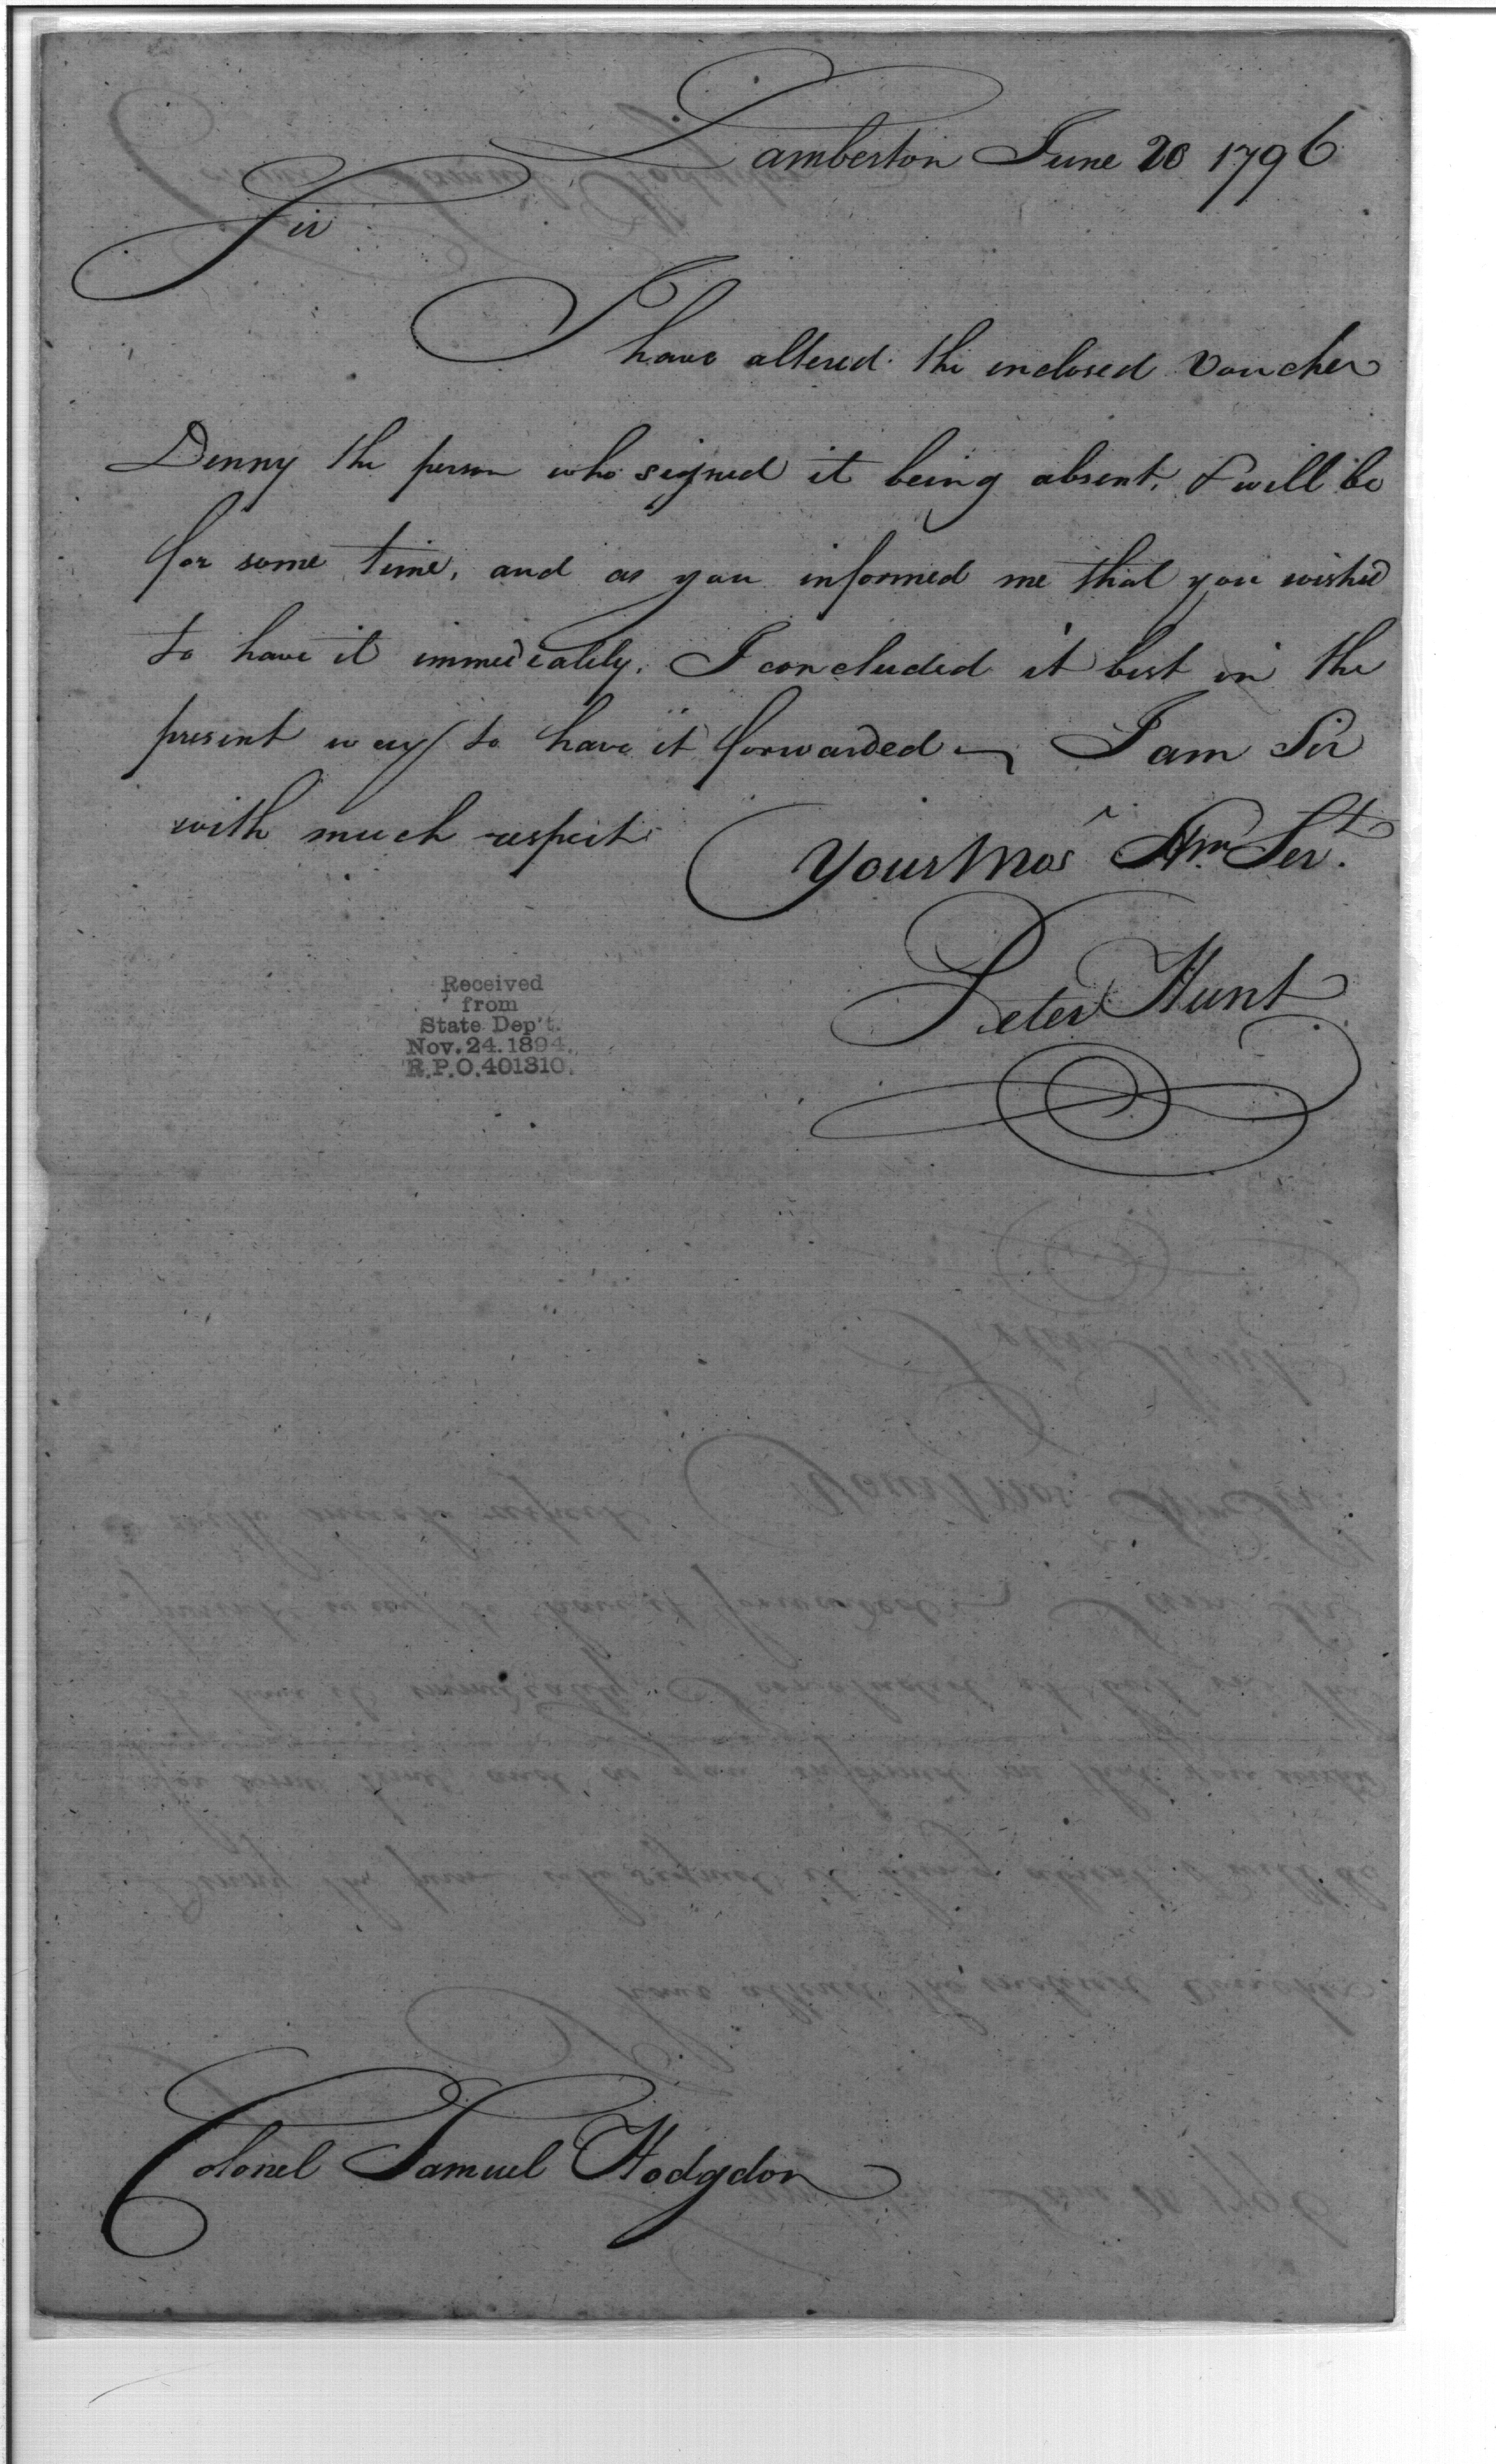 Lamberton June 20 1796
Sir
I have altered the enclosed Voucher
Denny the person who signed it being absent, & will be
for some time, and as you informed me that you wished
to have it immediately. I concluded it best in the
present way to have it forwarded — I am Sir
with much respect
Your Mos Hm Sert.
Peter Hunt
Received
from
State Dep't.
Nov. 24. 1894.
R.P.O. 401310.
Colonel Samuel Hodgdon